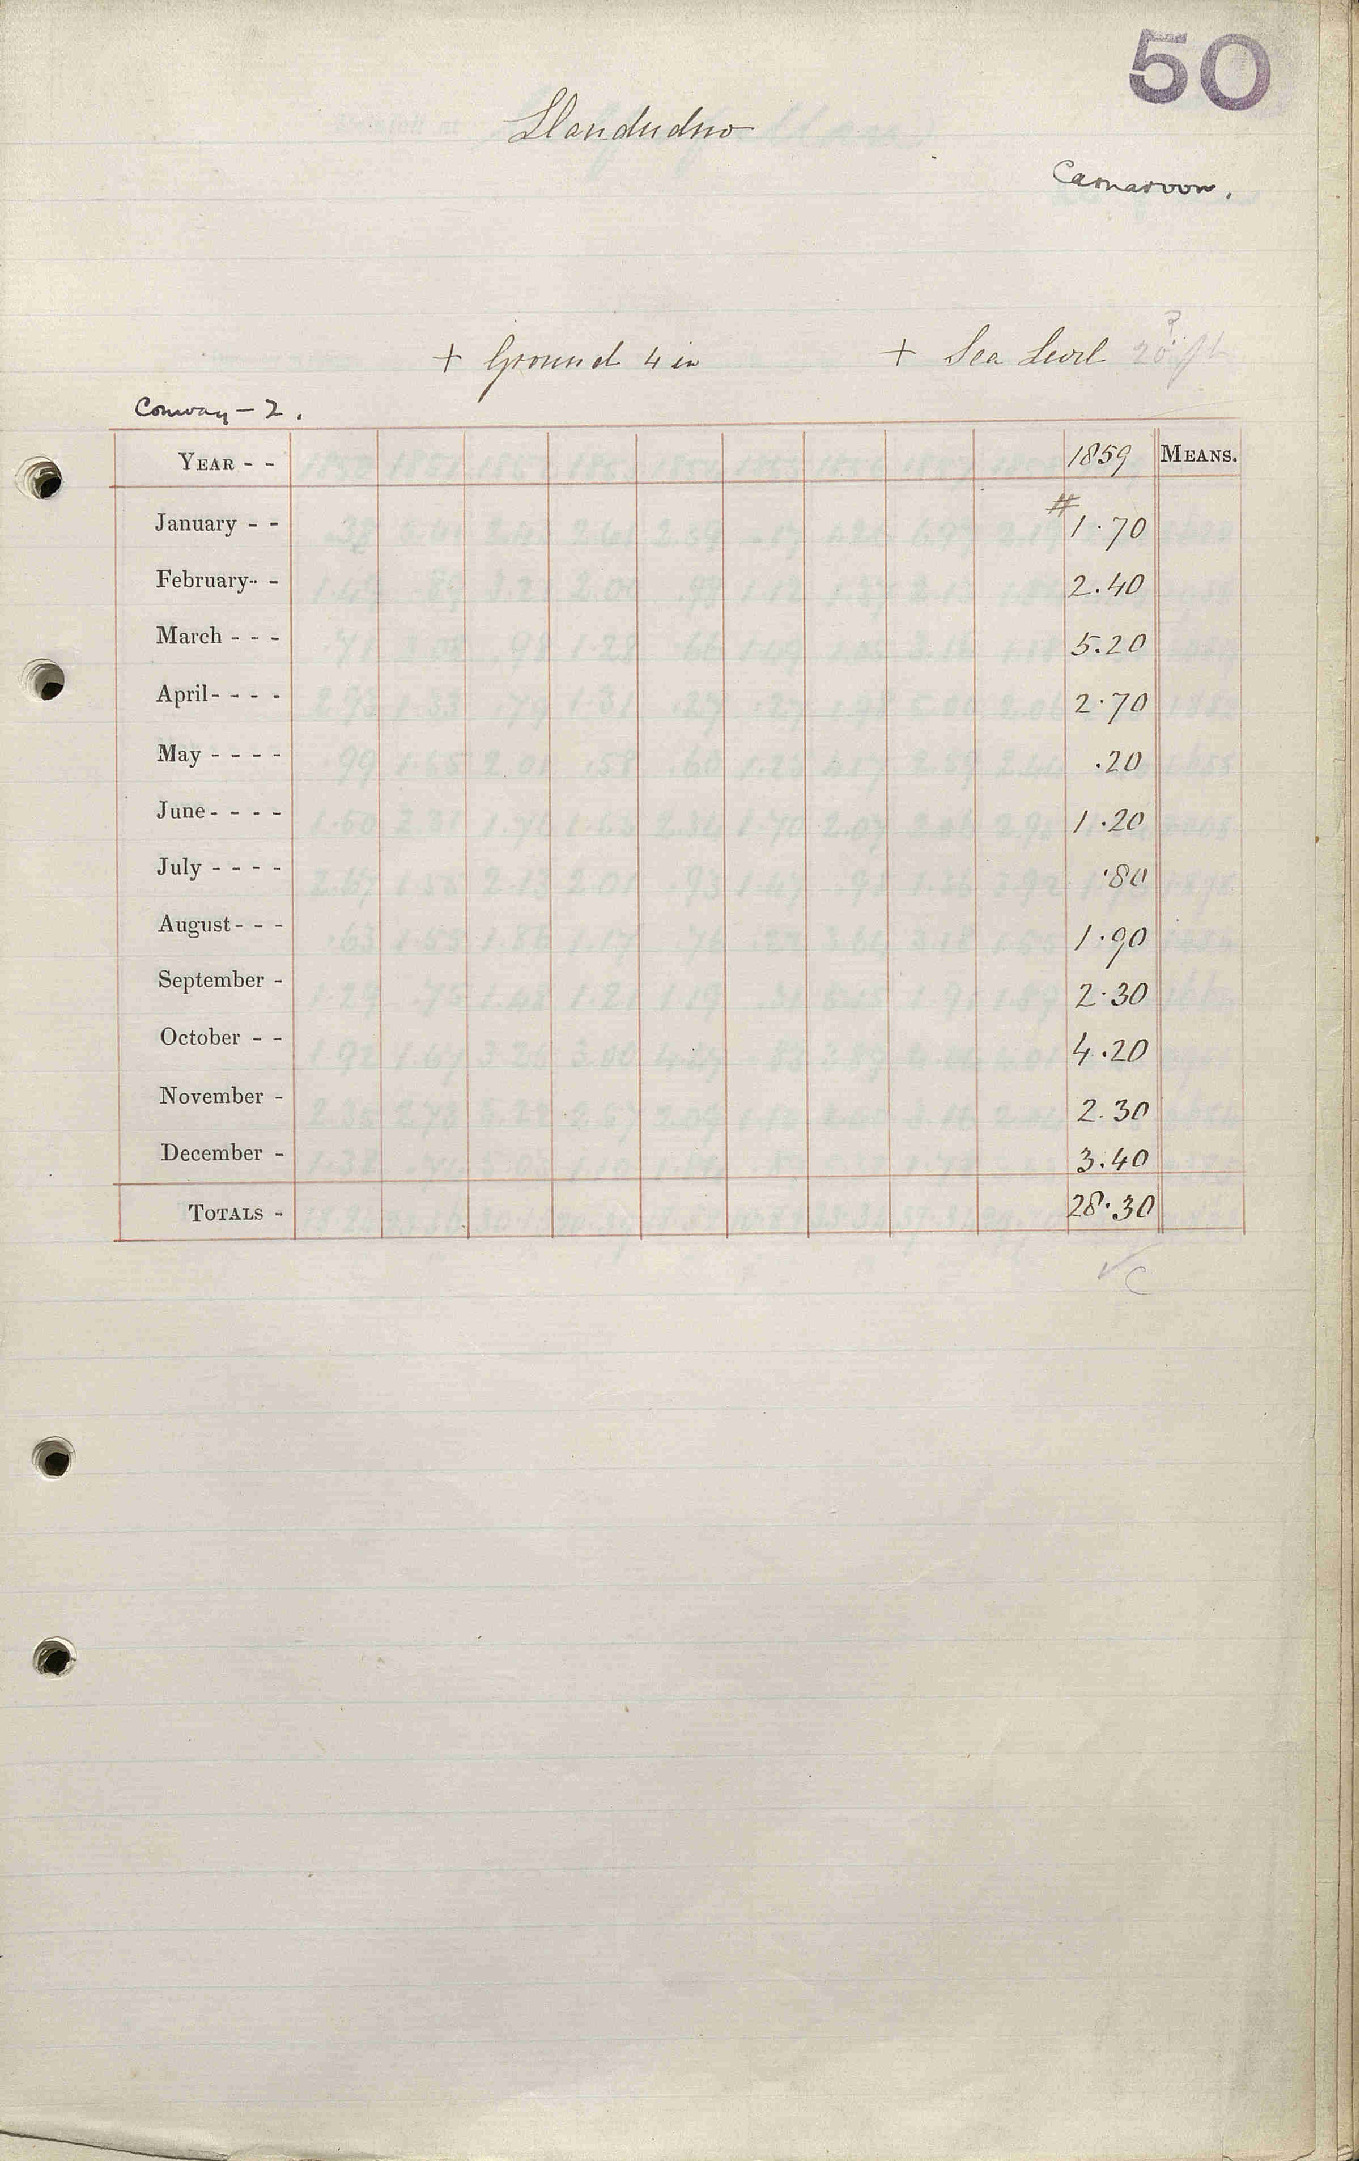 50
Llandudno
Carnarvon.
?
+ Ground 4 in + Sea Level 20 ft
Conway - 2.
YEAR - - 1859 MEANS.
#
January - - 1.70
February - - 2.40
March - - - 5.20
April - - - - 2.70
May - - - - .20
June - - - - 1.20
July - - - - .80
August - - - 1.90
September - 2.30
October - - 4.20
November - 2.30
December - 3.40
TOTALS - 28.30
✓ C